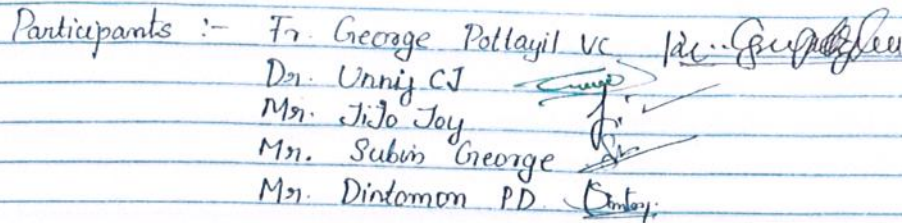 Participants :- Fr. George Pottayil VC
Dr. Unnij CJ
Mr. JiJo Joy
Mr. Subin George
Mr. Dintomon PD.